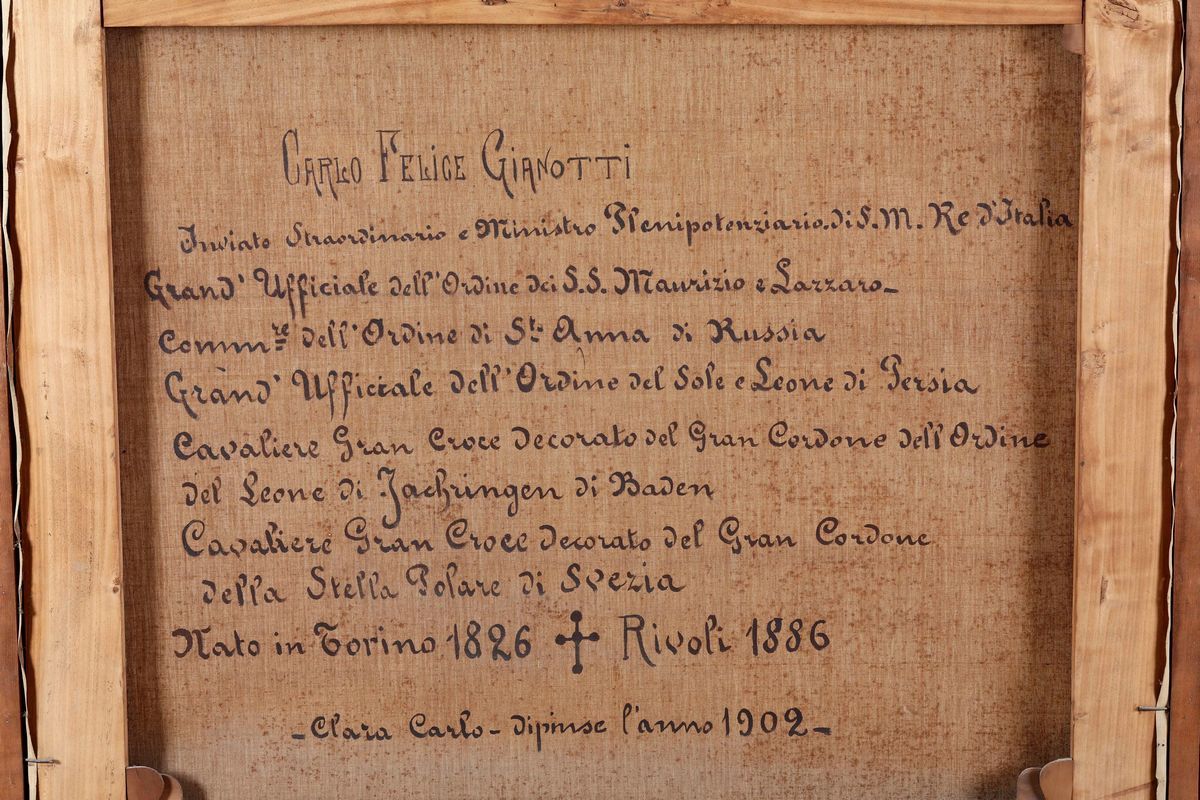 CARLO FELICE GIANOTTI
Inviato Straordinario e Ministro Plenipotenziario di S. M. Re d'Italia
Grand' Ufficiale dell'Ordine dei S.S. Maurizio e Lazzaro-
Commre dell'Ordine di Sta Anna di Russia
Grand' Ufficiale dell'Ordine del Sole e Leone di Persia
Cavaliere Gran Croce decorato del Gran Cordone dell'Ordine
del Leone di Zachringen di Baden
Cavaliere Gran Croce decorato del Gran Cordone
della Stella Polare di Svezia
Nato in Torino 1826 ✝ Rivoli 1886
-Clara Carlo- dipinse l'anno 1902-